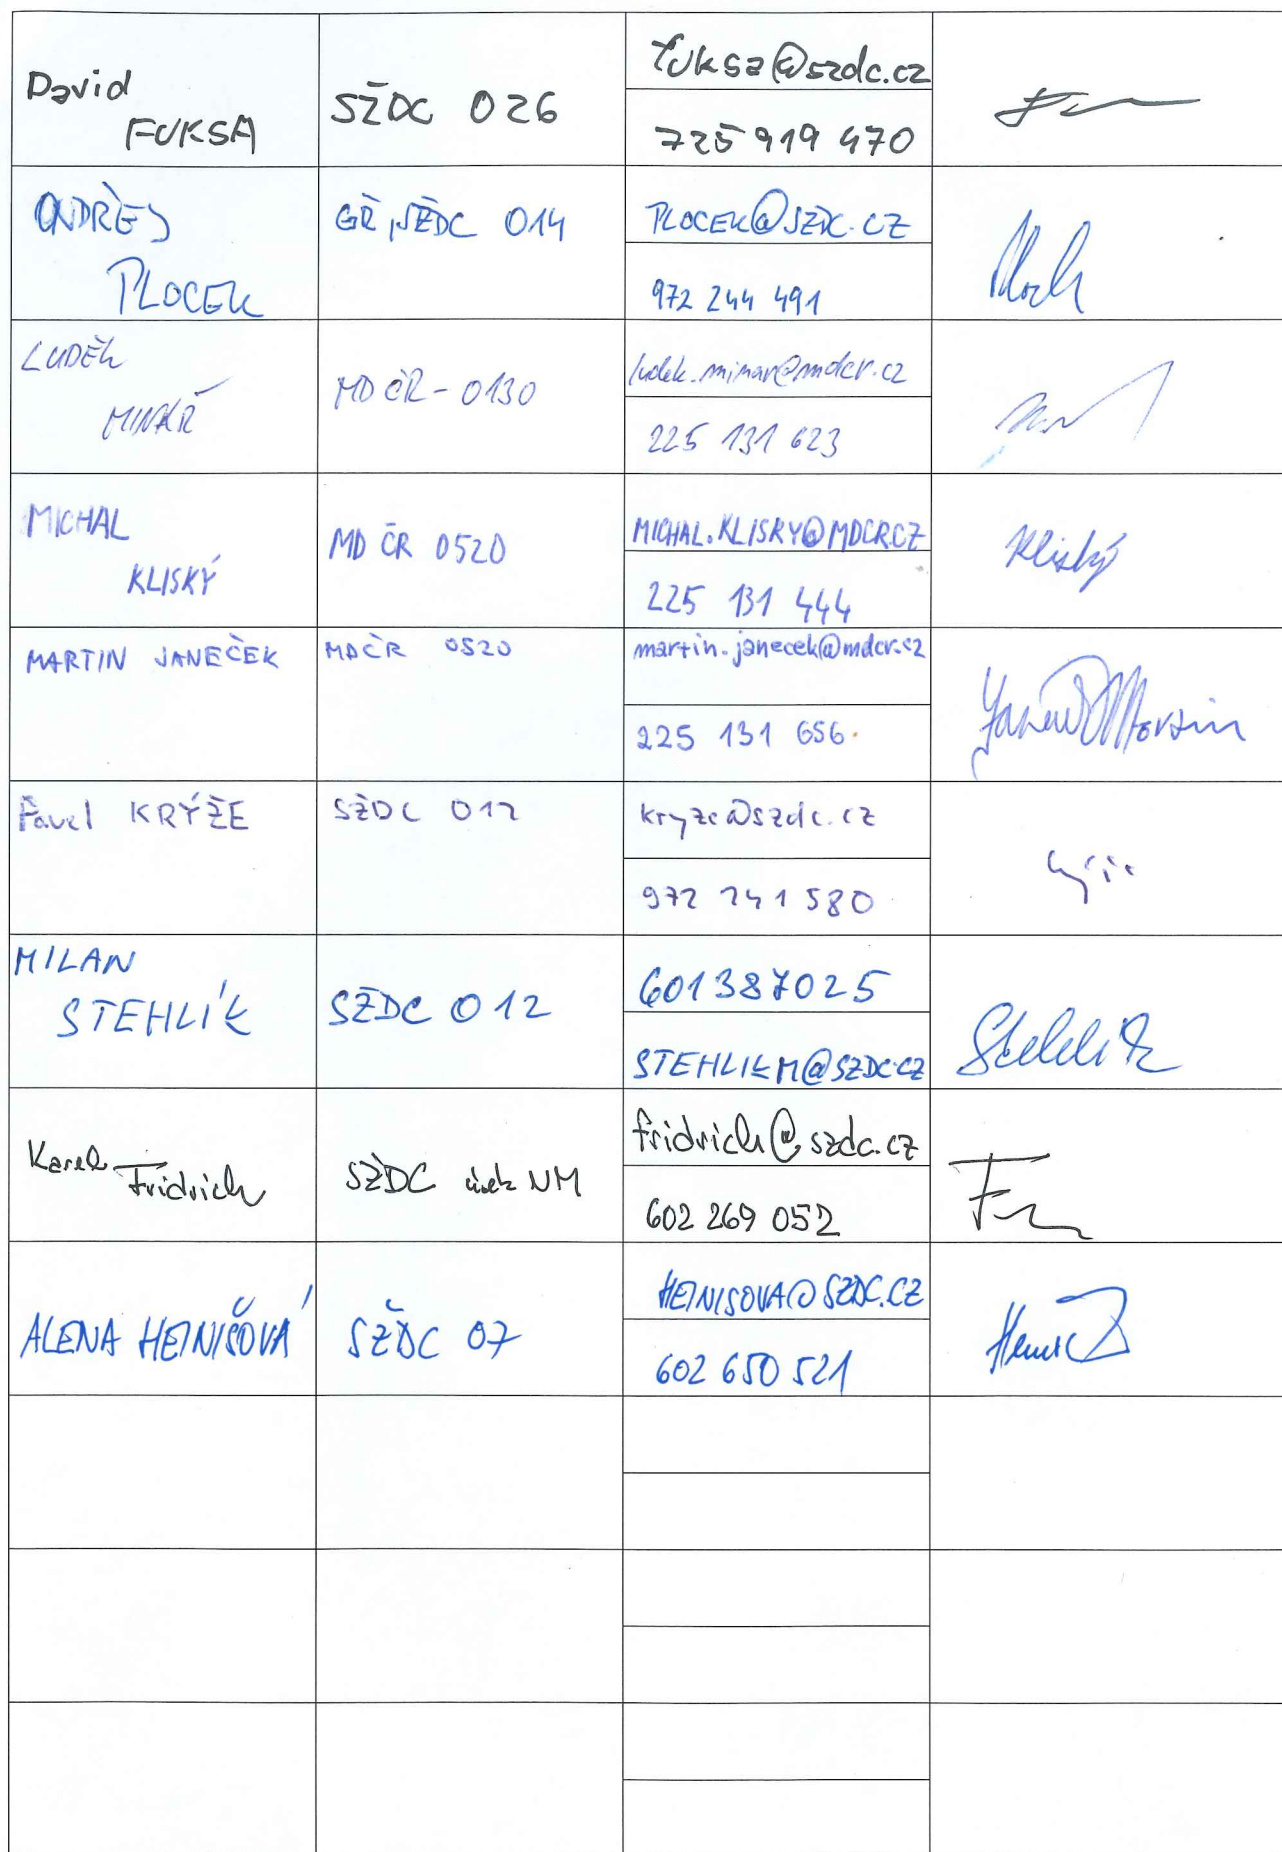 David
FUKSA
SŽDC 026
fuksa@szdc.cz
725 919 470
ONDŘEJ
PLOCEK
GŘ, SŽDC 014
PLOCEK@SZDC.CZ
972 244 491
LUDĚK
MINÁŘ
MD ČR - 0130
ludek.minar@mdcr.cz
225 131 623
MICHAL
KLISKÝ
MD ČR 0520
MICHAL.KLISKY@MDCR.CZ
225 131 444
Kliský
MARTIN JANEČEK
MDČR 0520
martin.janecek@mdcr.cz
225 131 656
Pavel KRÝŽE
SŽDC 012
kryze@szdc.cz
972 241 580
MILAN
STEHLÍK
SŽDC 012
601387025
STEHLIKM@SZDC.CZ
Stehlík
Karel Fridrich
SŽDC úsek NM
fridrich@szdc.cz
602 269 052
ALENA HEINIŠOVÁ
SŽDC 07
HEINISOVA@SZDC.CZ
602 650 521